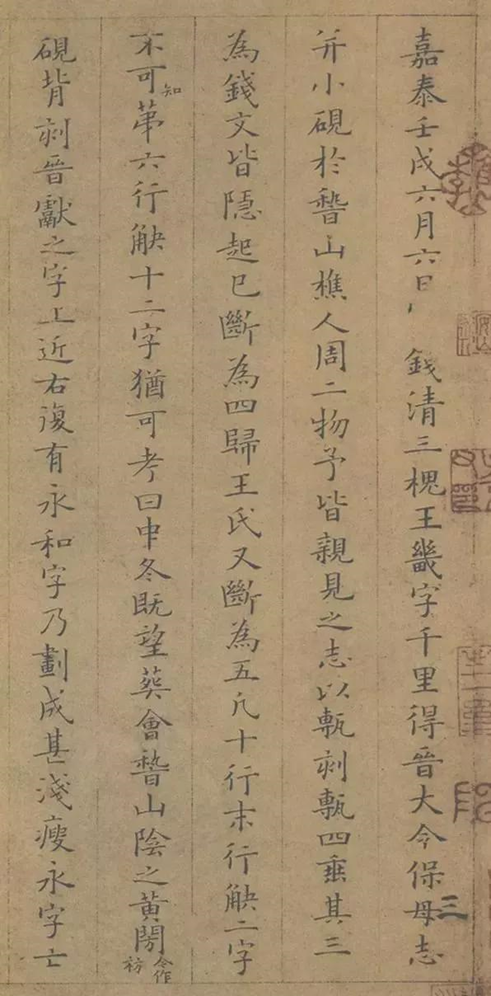 嘉泰壬戌六月六日錢清三槐王畿字千里得晉大令保母志
并小硯於稽山樵人周二物予皆親見之志以甎刻甎四垂其三
為錢文皆隱起已斷為四歸王氏又斷為五凡十行末行觖二字
不可知苐六行觖十二字猶可考曰中冬既望葬會稽山陰之黃閍
令作祊
硯背刻晉獻之字上近右復有永和字乃劃成甚淺瘦永字亡